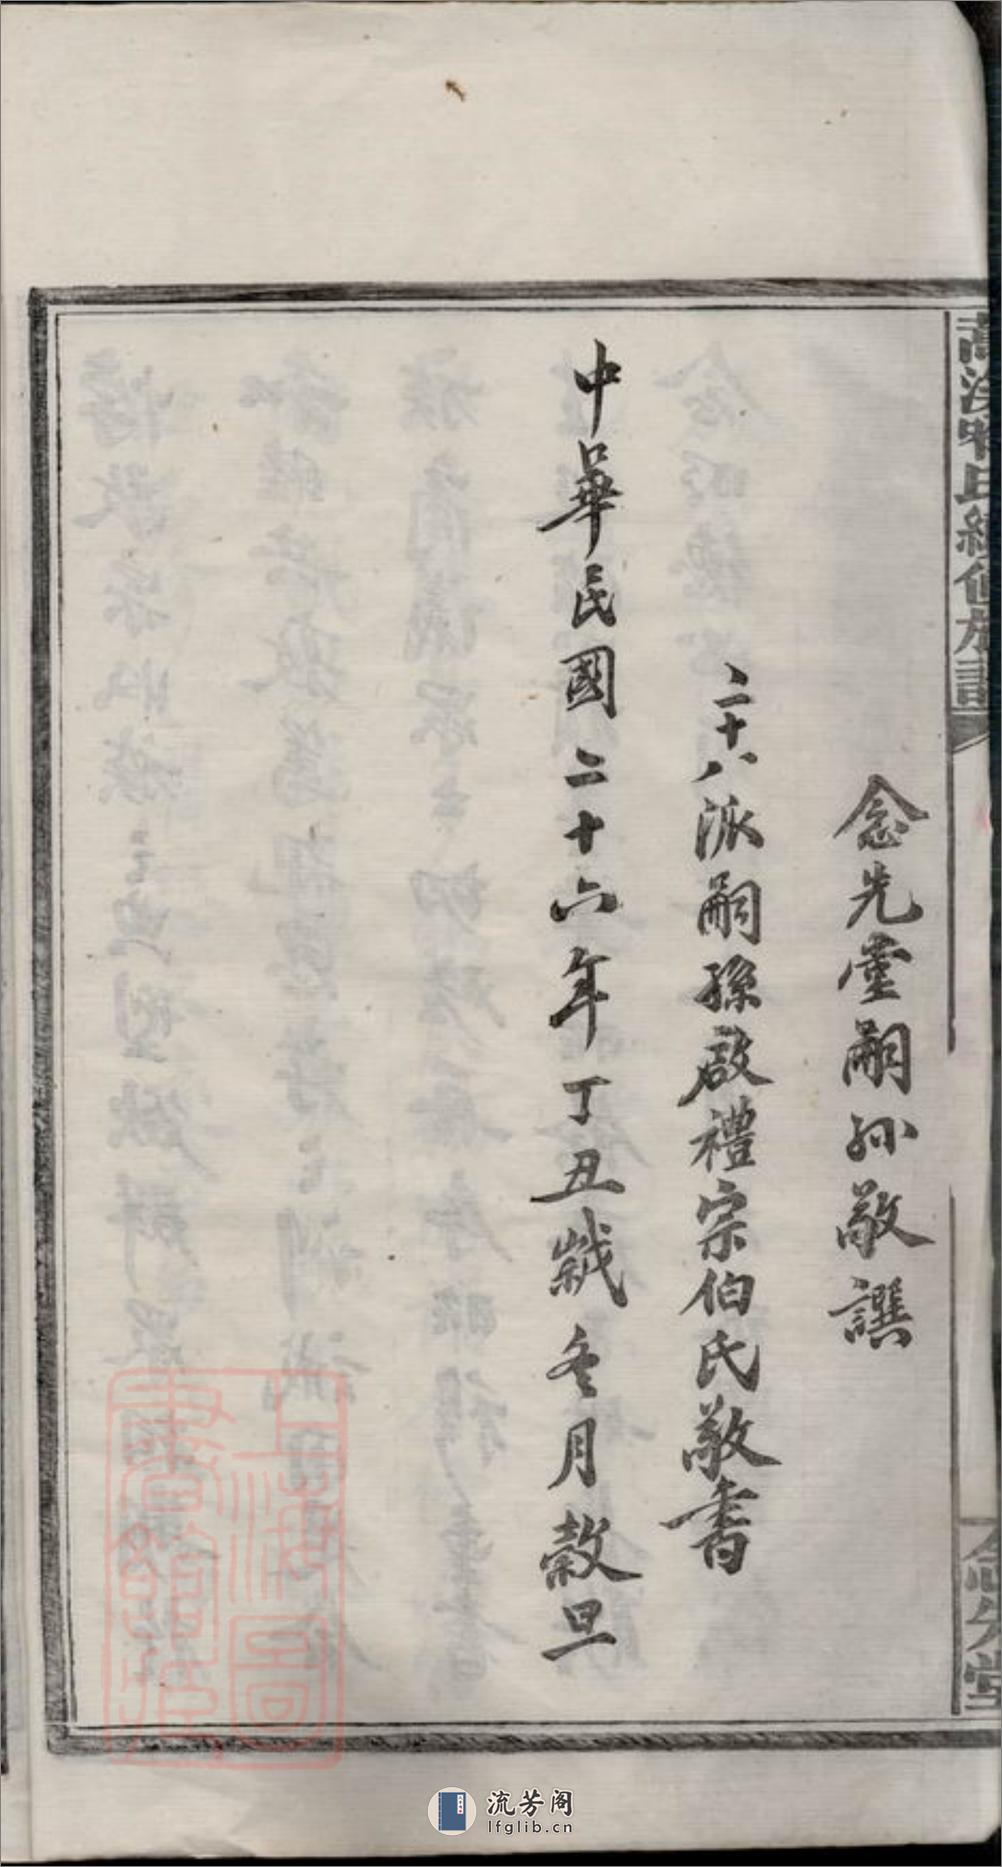 念先堂嗣孙敬譔
二十八派嗣孫啟禮宗伯氏敬書
中華民國二十六年丁丑歲冬月穀旦
氏續修族譜
念先堂
上海圖書館藏
流芳阁
lfglib.cn